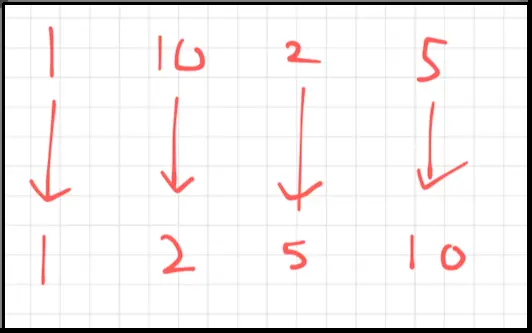 1 10 2 5
1 2 5 10